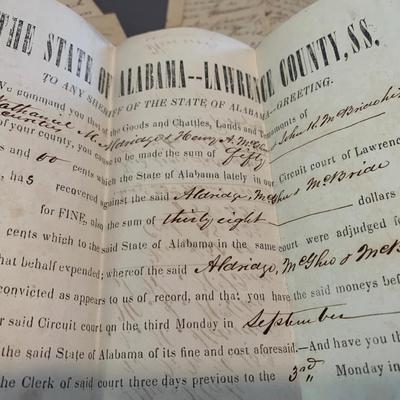 THE STATE OF ALABAMA--LAWRENCE COUNTY, SS.
TO ANY SHERIFF OF THE STATE OF ALABAMA--GREETING.
We command you that of the Goods and Chattles, Lands and Tenements of
Nathaniel M. Aldridge & Henry A. McGhee & John K. McBride his
securities of your county, you cause to be made the sum of fifty
and 00 cents which the State of Alabama lately in our Circuit court of Lawrence
has recovered against the said Aldridge, McGhee & McBride
for FINE, also the sum of thirty eight dollars
cents which to the said State of Alabama in the same court were adjudged for
that behalf expended; whereof the said Aldridge, McGhee & McB
convicted as appears to us of record, and that you have the said moneys before
said Circuit court on the third Monday in September
the said State of Alabama of its fine and cost aforesaid.--And have you th
the Clerk of said court three days previous to the 3rd Monday in